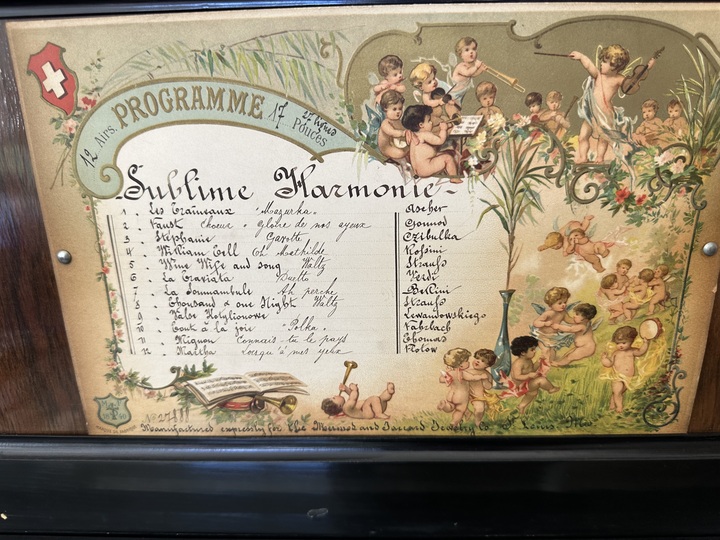 12 Airs. PROGRAMME 17 Pouces
Sublime Harmonie
1 . Les Traineaux Mazurka. Ascher
2 . Faust Choeur . gloire de nos ayeux Gounod
3 . Stéphanie Gavotte Czibulka
4 . William Tell Ch. Mathilde Rossini
5 . Wine Wife and song Waltz Strauss
6 . La Traviata Duetto Verdi
7 . La Somnambule Ah perche Bellini
8 . Thousand & one Night Waltz Strauss
9 . Valse Lewandowskiego
10 . Tout à la joie Polka. Fahrbach
11 . Mignon Connais-tu le pays Thomas
12 . Martha Lorsqu'à mes yeux Flotow
No
Manufactured expressly for The Mermod and Jaccard Jewelry Co St Louis. Mo